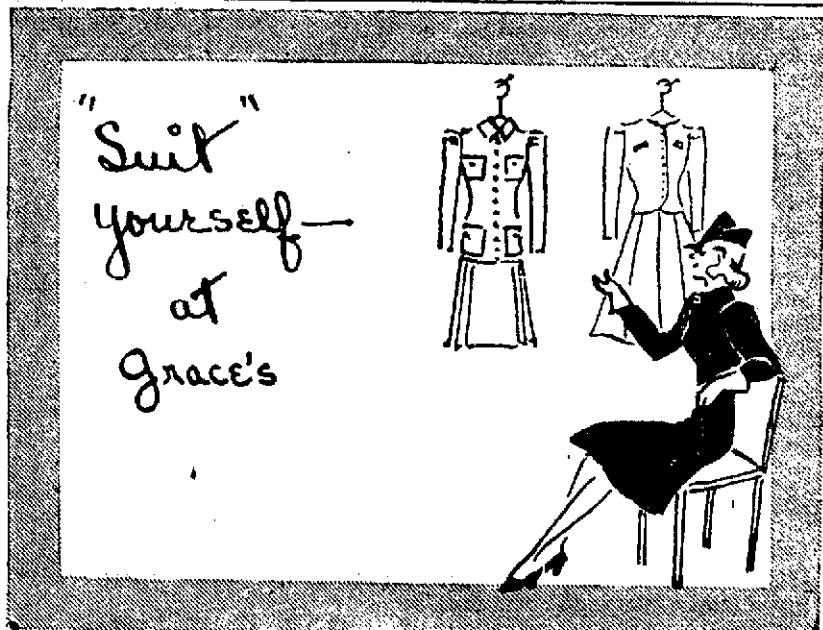 "Suit"
yourself—
at
Grace's